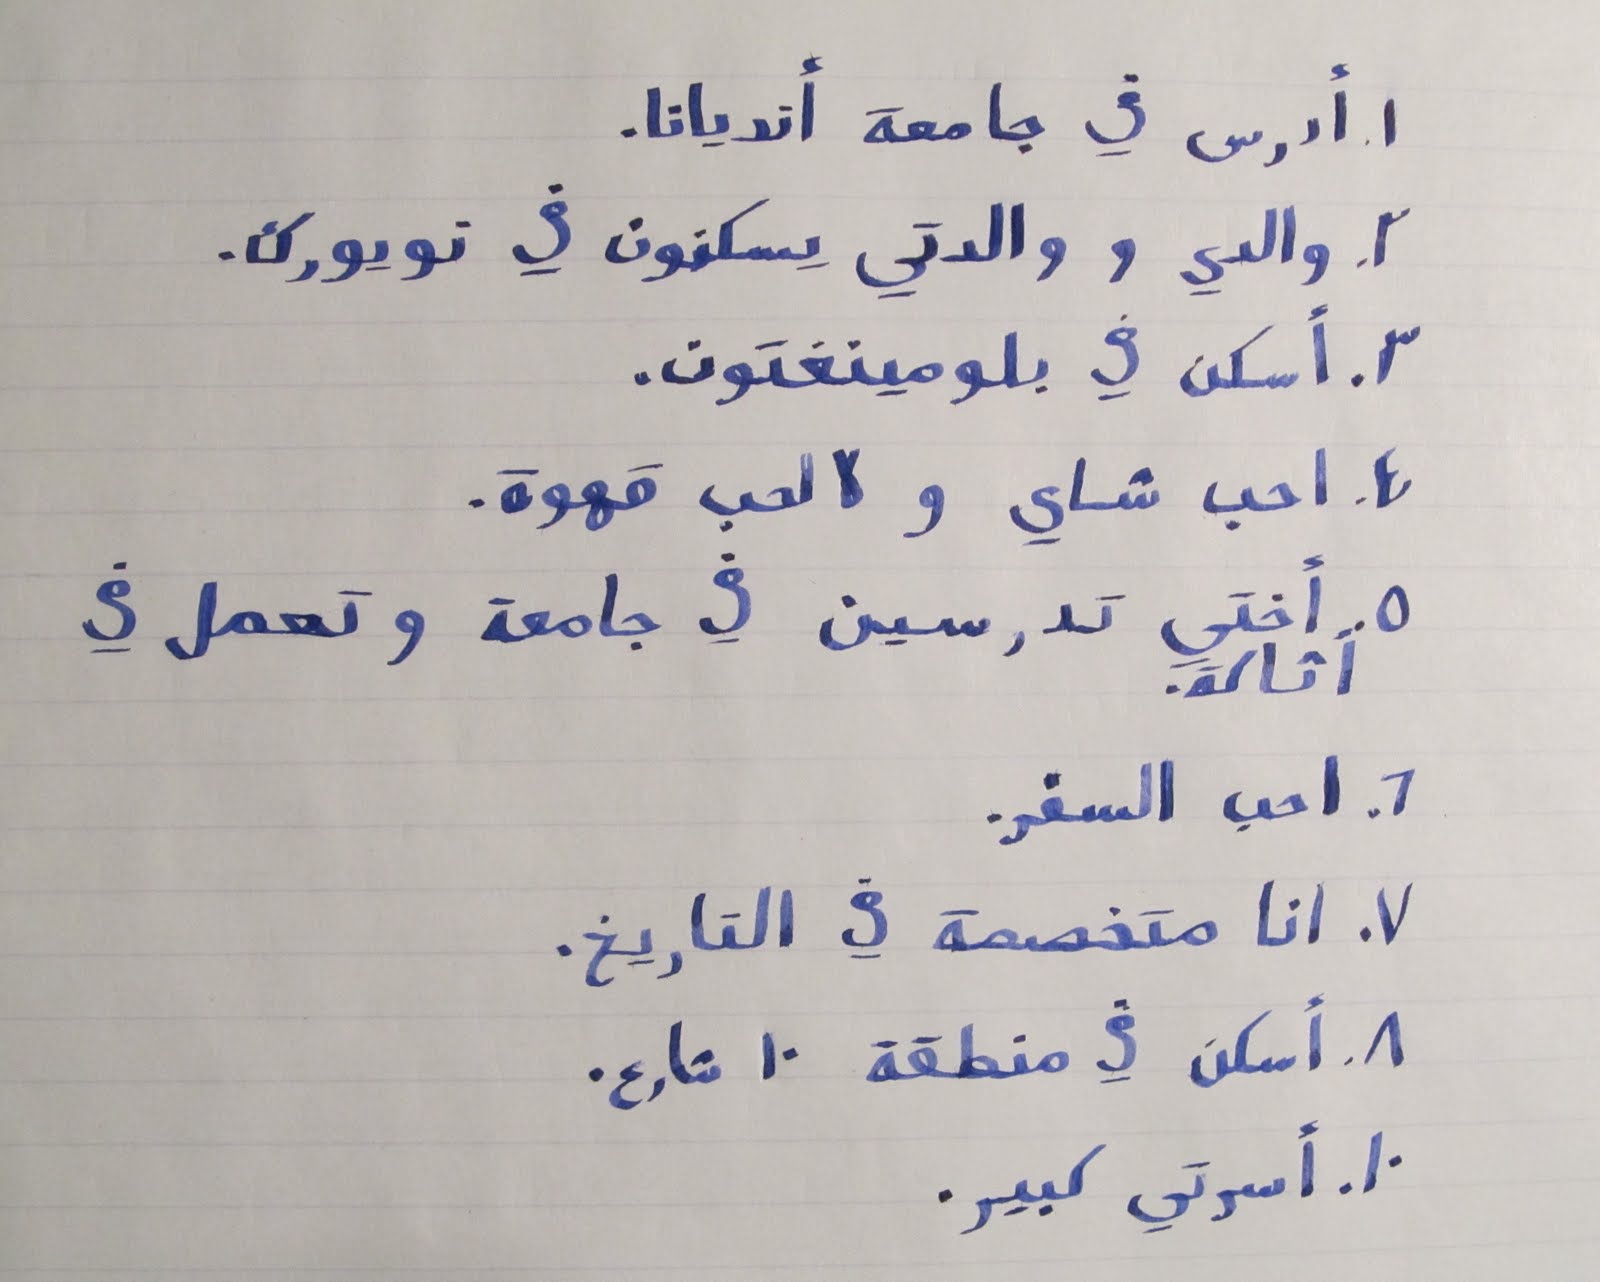 ١. أدرس في جامعة أنديانا.
٢. والدي و والدتي يسكنون في نويورك.
٣. أسكن في بلومينغتون.
٤. احب شاي و لا احب قهوة.
٥. أختي تدرسين في جامعة و تعمل في
٦. احب السفر.
٧. انا متخصصة في التاريخ.
٨. أسكن في منطقة ١٠ شارع.
١٠. أسرتي كبير.